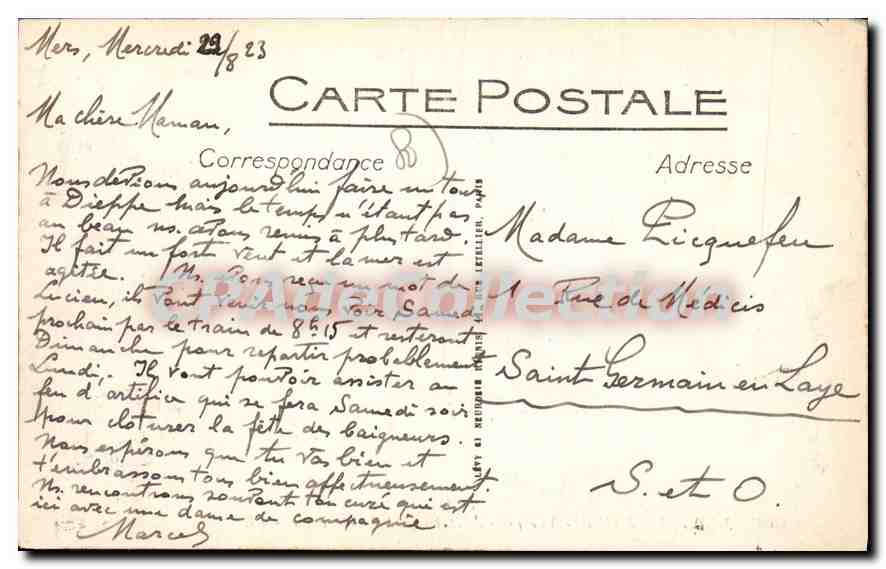 Mers, Mercredi 22/8 23
CARTE POSTALE
Ma chère Maman,
Correspondance
Adresse
Nous devions aujourd'hui faire un tour
à Dieppe mais le temps n'étant pas
au beau ns. avons remis à plus tard.
Il fait un fort vent et la mer est
agitée. Ns. avons reçu un mot de
Lucien, ils vont venir nous voir Samedi
prochain par le train de 8h15 et resteront
Dimanche pour repartir probablement
Lundi. Il vont pouvoir assister au
feu d'artifice qui se fera Samedi soir
pour cloturer la fête des baigneurs.
Nous espérons que tu vas bien et
t'embrassons tous bien affectueusement.
Ns. rencontrons souvent ton curé qui est
ici avec une dame de compagnie
Marcel
LÉVY et NEURDEIN RÉUNIS, 44, RUE LETELLIER, PARIS
Madame Picquefeu
1 Rue de Médicis
Saint Germain en Laye
S. et O.
CPADeCollection